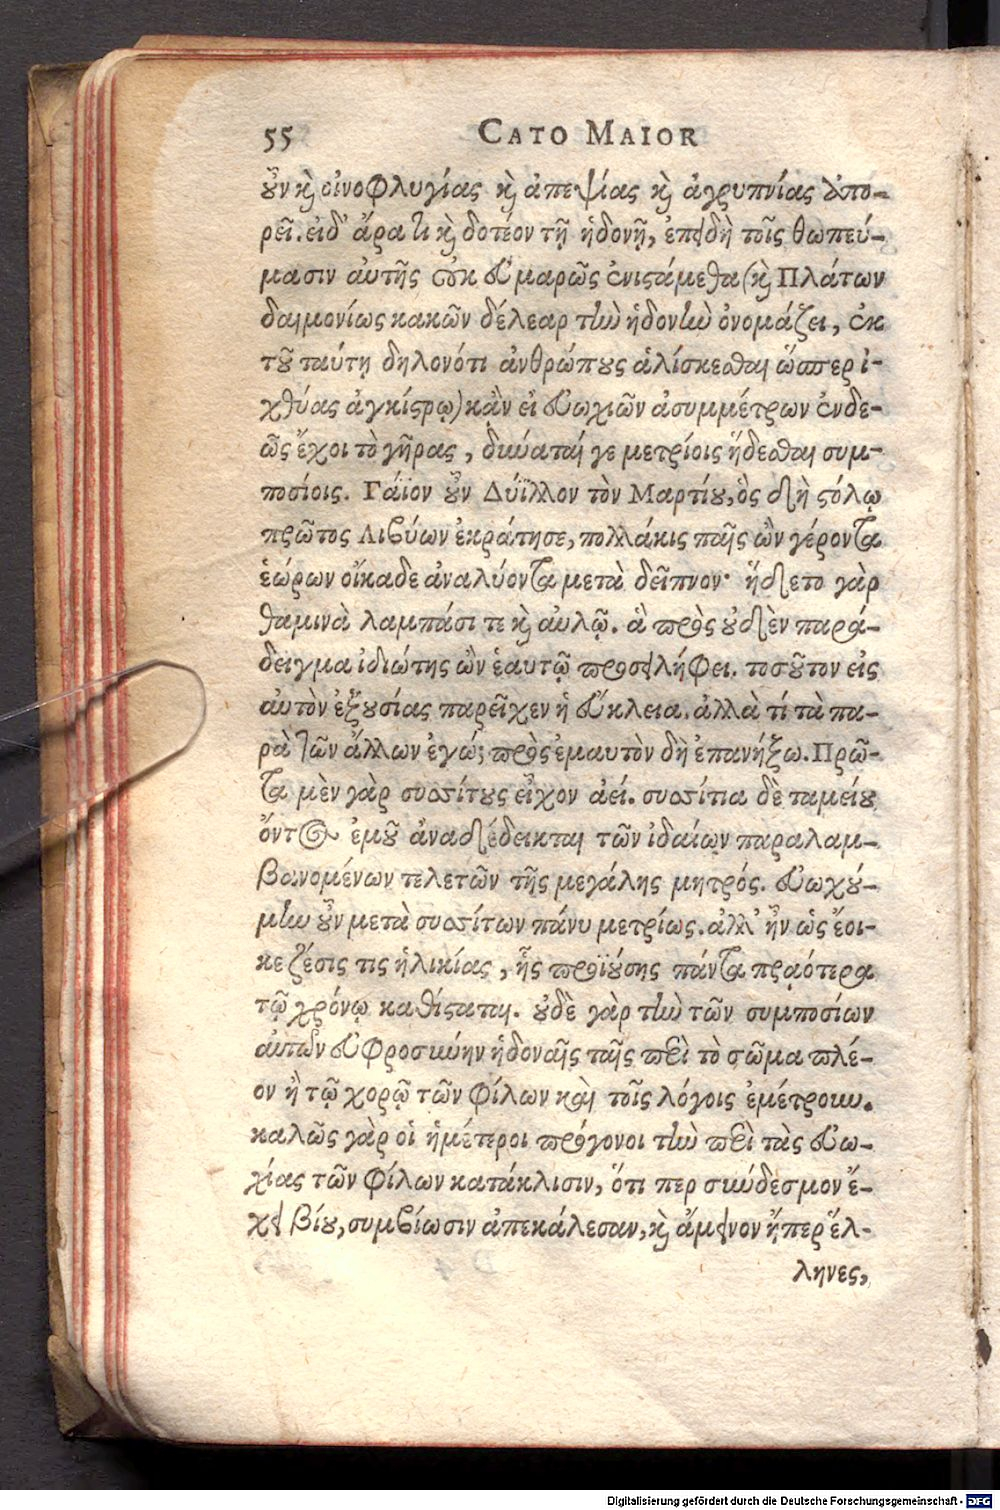 55 CATO MAIOR
οὖν καὶ οἰνοφλυγίας καὶ ἀπεψίας καὶ ἀγρυπνίας ἀπο-
ρεῖ. εἰ δ' ἄρα τι καὶ δοτέον τῇ ἡδονῇ, ἐπειδὴ τοῖς θωπεύ-
μασιν αὐτῆς οὐκ εὐμαρῶς ἐνιστάμεθα (καὶ Πλάτων
δαιμονίως κακῶν δέλεαρ τὴν ἡδονὴν ὀνομάζει, ἐκ
τοῦ ταύτῃ δηλονότι ἀνθρώπους ἁλίσκεσθαι ὥσπερ ἰ-
χθύας ἀγκίστρῳ) κἂν εἰ εὐωχιῶν ἀσυμμέτρων ἐνδε-
ῶς ἔχοι τὸ γῆρας, δύναταί γε μετρίοις ἥδεσθαι συμ-
ποσίοις. Γάϊον οὖν Δύϊλλον τὸν Μαρτίου, ὃς δὴ στόλῳ
πρῶτος Λιβύων ἐκράτησε, πολλάκις παῖς ὢν γέροντα
ἑώρων οἴκαδε ἀναλύοντα μετὰ δεῖπνον· ἥδετο γὰρ
θαμινὰ λαμπάσι τε καὶ αὐλῷ. ἃ πρὸς οὐδὲν παρά-
δειγμα ἰδιώτης ὢν ἑαυτῷ προσειλήφει. τοσοῦτον εἰς
αὐτὸν ἐξουσίας παρεῖχεν ἡ εὔκλεια. ἀλλὰ τί τὰ πα-
ρὰ τῶν ἄλλων ἐγώ; πρὸς ἐμαυτὸν δὴ ἐπανήξω. Πρῶ-
τα μὲν γὰρ συσσίτους εἶχον ἀεί. συσσίτια δὲ ταμείου
ὄντος ἐμοῦ ἀναδέδεικται τῶν ἰδαίων παραλαμ-
βανομένων τελετῶν τῆς μεγάλης μητρός. εὐωχού-
μην οὖν μετὰ συσσίτων πάνυ μετρίως. ἀλλ' ἦν ὡς ἔοι-
κε ζέσις τις ἡλικίας, ἧς προϊούσης πάντα πραότερα
τῷ χρόνῳ καθίσταται. οὐδὲ γὰρ τὴν τῶν συμποσίων
αὐτῶν εὐφροσύνην ἡδοναῖς ταῖς περὶ τὸ σῶμα πλέ-
ον ἢ τῷ χορῷ τῶν φίλων καὶ τοῖς λόγοις ἐμέτρουν.
καλῶς γὰρ οἱ ἡμέτεροι πρόγονοι τὴν περὶ τὰς εὐω-
χίας τῶν φίλων κατάκλισιν, ὅτι περ σύνδεσμον ἔ-
χει βίου, συμβίωσιν ἀπεκάλεσαν, καὶ ἄμεινον ἤπερ ἕλ-
ληνες,
Digitalisierung gefördert durch die Deutsche Forschungsgemeinschaft - DFG